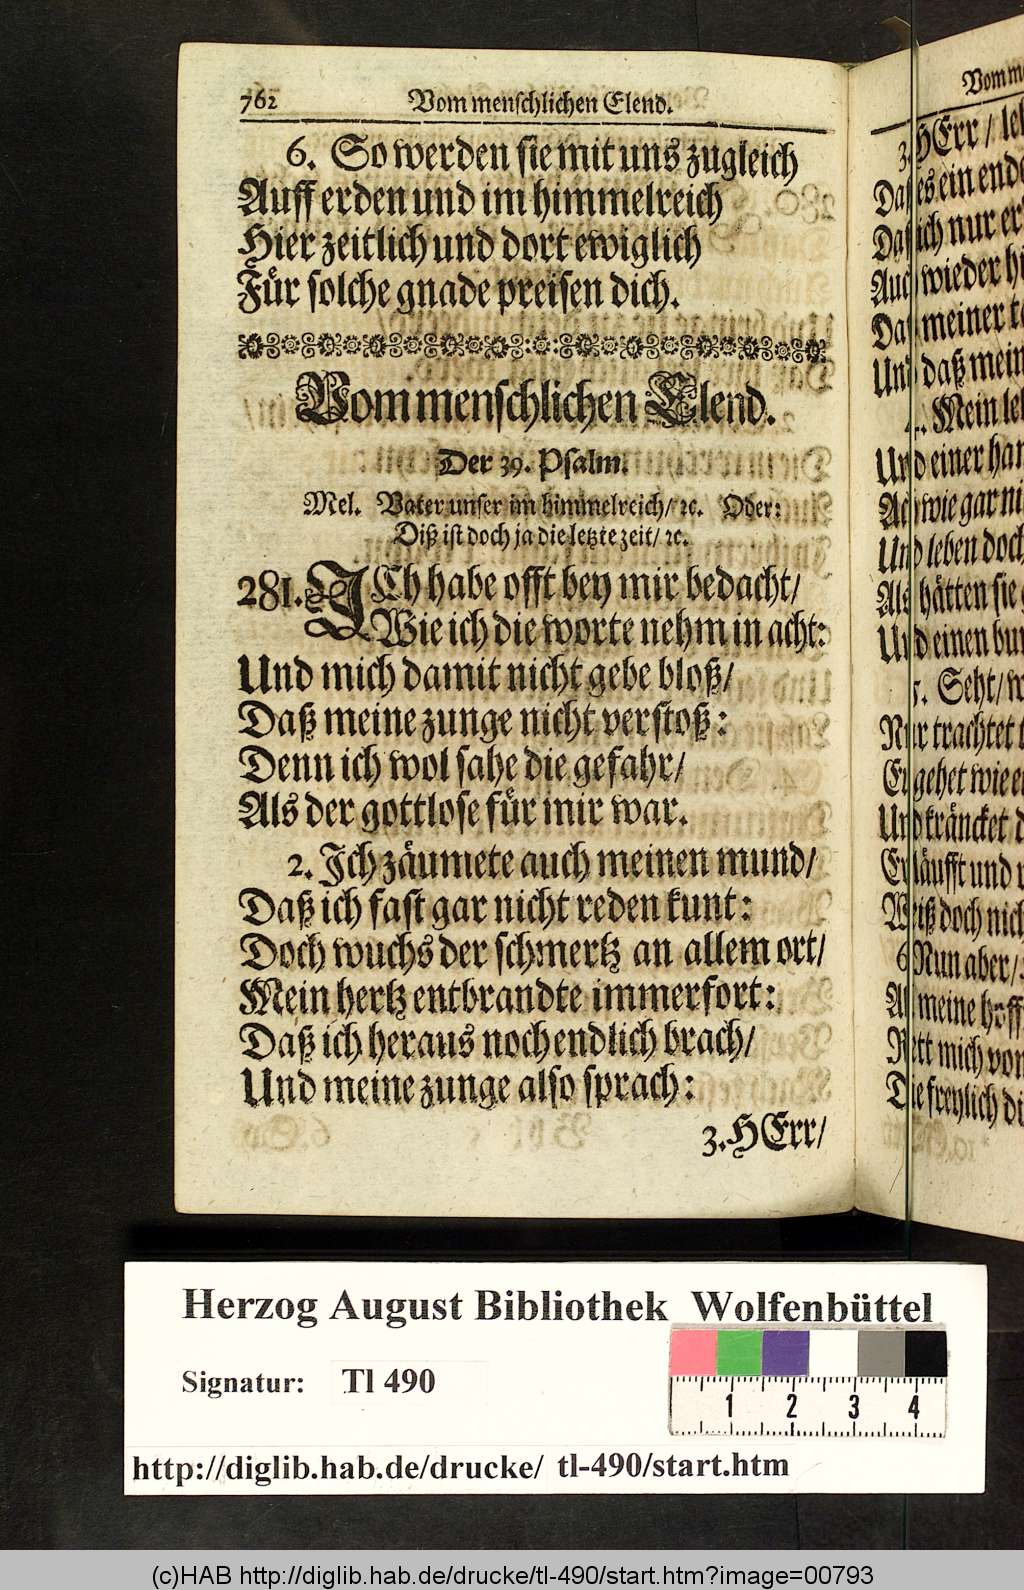 762 Vom menschlichen Elend.
6. So werden sie mit uns zugleich
Auff erden und im himmelreich
Hier zeitlich und dort ewiglich
Für solche gnade preisen dich.
Vom menschlichen Elend.
Der 39. Psalm.
Mel. Vater unser im himmelreich/ ꝛc. Oder:
Diß ist doch ja die letzte zeit/ ꝛc.
281. ICh habe offt bey mir bedacht/
Wie ich die worte nehm in acht:
Und mich damit nicht gebe bloß/
Daß meine zunge nicht verstoß:
Denn ich wol sahe die gefahr/
Als der gottlose für mir war.
2. Ich zäumete auch meinen mund/
Daß ich fast gar nicht reden kunt:
Doch wuchs der schmertz an allem ort/
Mein hertz entbrandte immerfort:
Daß ich heraus noch endlich brach/
Und meine zunge also sprach:
3. HErr/
3. HErr/
ein
nur
wieder
meiner
Und daß mein
Mein
Und einer
wie gar
Und leben doch
hätten sie
Und einen
5. Seht/
Nur trachtet
Er gehet wie
Und kräncket
Er läufft und
Weiß doch
6 Nun aber/
meine
Rett mich von
Die freylich
Herzog August Bibliothek Wolfenbüttel
Signatur: Tl 490
1 2 3 4
http://diglib.hab.de/drucke/ tl-490/start.htm
(c)HAB http://diglib.hab.de/drucke/tl-490/start.htm?image=00793